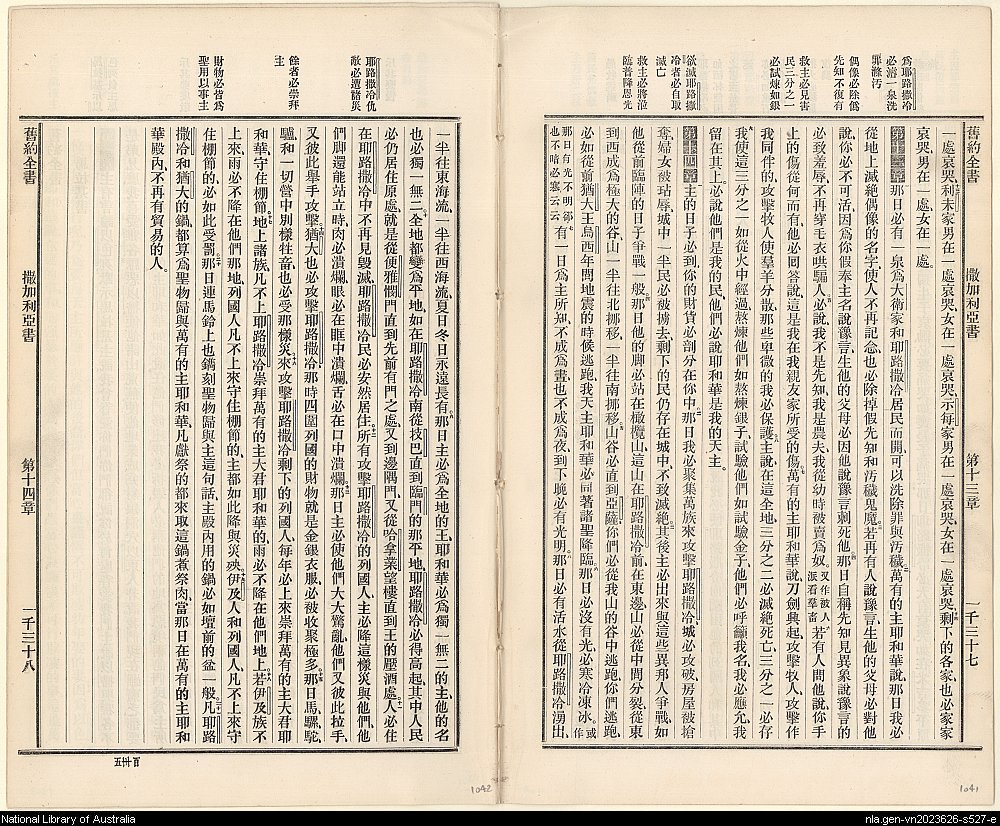 舊約全書 撒加利亞書 第十三章 一千三十七
一處哀哭、利未家男在一處哀哭、女在一處哀哭、示每家男在一處哀哭、女在一處哀哭、剩下的各家、也必家家
哀哭、男在一處、女在一處。
爲耶路撒冷
必濬一泉洗
罪滌汚
第十三章 那日必有一泉、爲大衛家和耶路撒冷居民而開、可以洗除罪與汚穢、萬有的主耶和華說、那日我必
從地上滅絕偶像的名字、使人不再記念、也必除掉假先知和汚穢鬼魔。若再有人說豫言、生他的父母必對他
偶像必除僞
先知不復有
說、你必不可活、因爲你假奉主名說豫言、生他的父母必因他說豫言刺死他、那日自稱先知見異象說豫言的、
必致羞辱、不再穿毛衣哄騙人、必說我不是先知、我是農夫、我從幼時被賣爲奴。又作被人派看羣畜 若有人問他說、你手
救主必見害
民三分之一
必試煉如銀
上的傷從何而有、他必囘答說、這是我在我親友家所受的傷、萬有的主耶和華說、刀劍興起、攻擊牧人、攻擊作
我同伴的、攻擊牧人使羣羊分散、那些卑微的我必保護、主說、在這全地三分之二必滅絕死亡、三分之一必存、
我使這三分之一如從火中經過、熬煉他們如熬煉銀子、試驗他們如試驗金子、他們必呼籲我名、我必應允、我
留在其上、必說他們是我的民、他們必說耶和華是我的天主。
欲滅耶路撒
冷者必自取
滅亡
第十四章 主的日子必到、你的財貨必剖分在你中、那日我必聚集萬族來攻擊耶路撒冷、城必攻破、房屋被搶
奪、婦女被玷辱、城中一半民必被擄去、剩下的民仍存在城中、不致滅絕、其後主必出來與這些異邦人爭戰、如
救主必將涖
臨普降恩光
他從前臨陣的日子爭戰一般、那日他的脚必站在橄欖山、這山在耶路撒冷前、在東邊、山必從中間分裂、從東
到西成爲極大的谷、山一半往北挪移、一半往南挪移、山谷必直到亞薩、你們必從我山的谷中逃跑、你們逃跑、
必如從前猶大王烏西年間地震的時候逃跑、我天主耶和華必同著諸聖降臨、那日必沒有光、必寒冷凍冰。或作
那日有光不明卻也不暗必寒云云 有一日爲主所知、不成爲晝、也不成爲夜、到下晚必有光明。那日必有活水從耶路撒冷湧出、
1041
一半往東海流、一半往西海流、夏日冬日永遠長有、那日主必爲全地的王、耶和華必爲獨一無二的主、他的名
也必獨一無二、全地都變爲平地、如在耶路撒冷南從技巴直到臨門的那平地、耶路撒冷必得高起、其中人民
必仍居住原處、就是從便雅憫門直到先前有門之處、又到邊隅門、又從哈拿業望樓直到王的壓酒處、人必住
耶路撒冷仇
敵必遭諸災
在耶路撒冷中、不再見毀滅、耶路撒冷民必安然居住、所有攻擊耶路撒冷的列國人、主必降這樣災與他們、他
們脚還能站立時、肉必潰爛、眼必在眶中潰爛、舌必在口中潰爛、那日主必使他們大大驚亂、他們又彼此拉手、
又彼此舉手攻擊、猶大也必攻擊耶路撒冷、那時四圍列國的財物、就是金銀衣服、必被收聚極多、那日馬騾駝
餘者必崇拜
主
驢和一切營中別樣牲畜、也必受那樣災、來攻擊耶路撒冷剩下的列國人、每年必上來崇拜萬有的主大君耶
和華、守住棚節、地上諸族凡不上耶路撒冷崇拜萬有的主大君耶和華的、雨必不降在他們地上、若伊及族不
上來、雨必不降在他們那地、列國人凡不上來守住棚節的、主都如此降與災殃、伊及人和列國人、凡不上來守
財物必皆爲
聖用以事主
住棚節的、必如此受罰、那日連馬鈴上也鐫刻聖物歸與主這句話、主殿內用的鍋、必如壇前的盆一般、凡耶路
撒冷和猶大的鍋、都算爲聖物、歸與萬有的主耶和華、凡獻祭的都來取這鍋煮祭肉、當那日在萬有的主耶和
華殿內、不再有貿易的人。
舊約全書 撒加利亞書 第十四章 一千三十八
百卅五
1042
National Library of Australia
nla.gen-vn2023626-s527-e